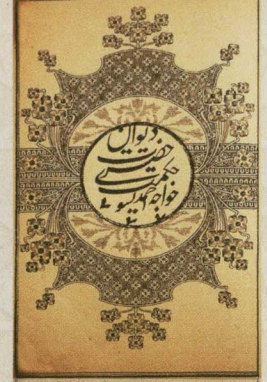 دیوان
حضرت
حکمت
خواجه احمد یسوی